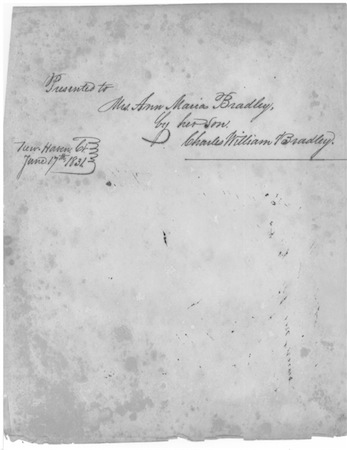 Presented to
Mrs. Ann Maria Bradley,
by her son.
Charles William Bradley.
New Haven Ct
June 17th 1831